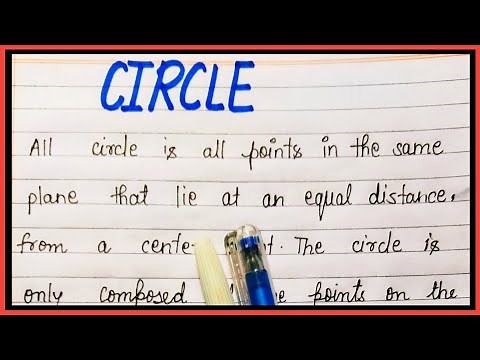 CIRCLE
All circle is all points in the same
plane that lie at an equal distance,
from a cente t. The circle is
only composed e points on the